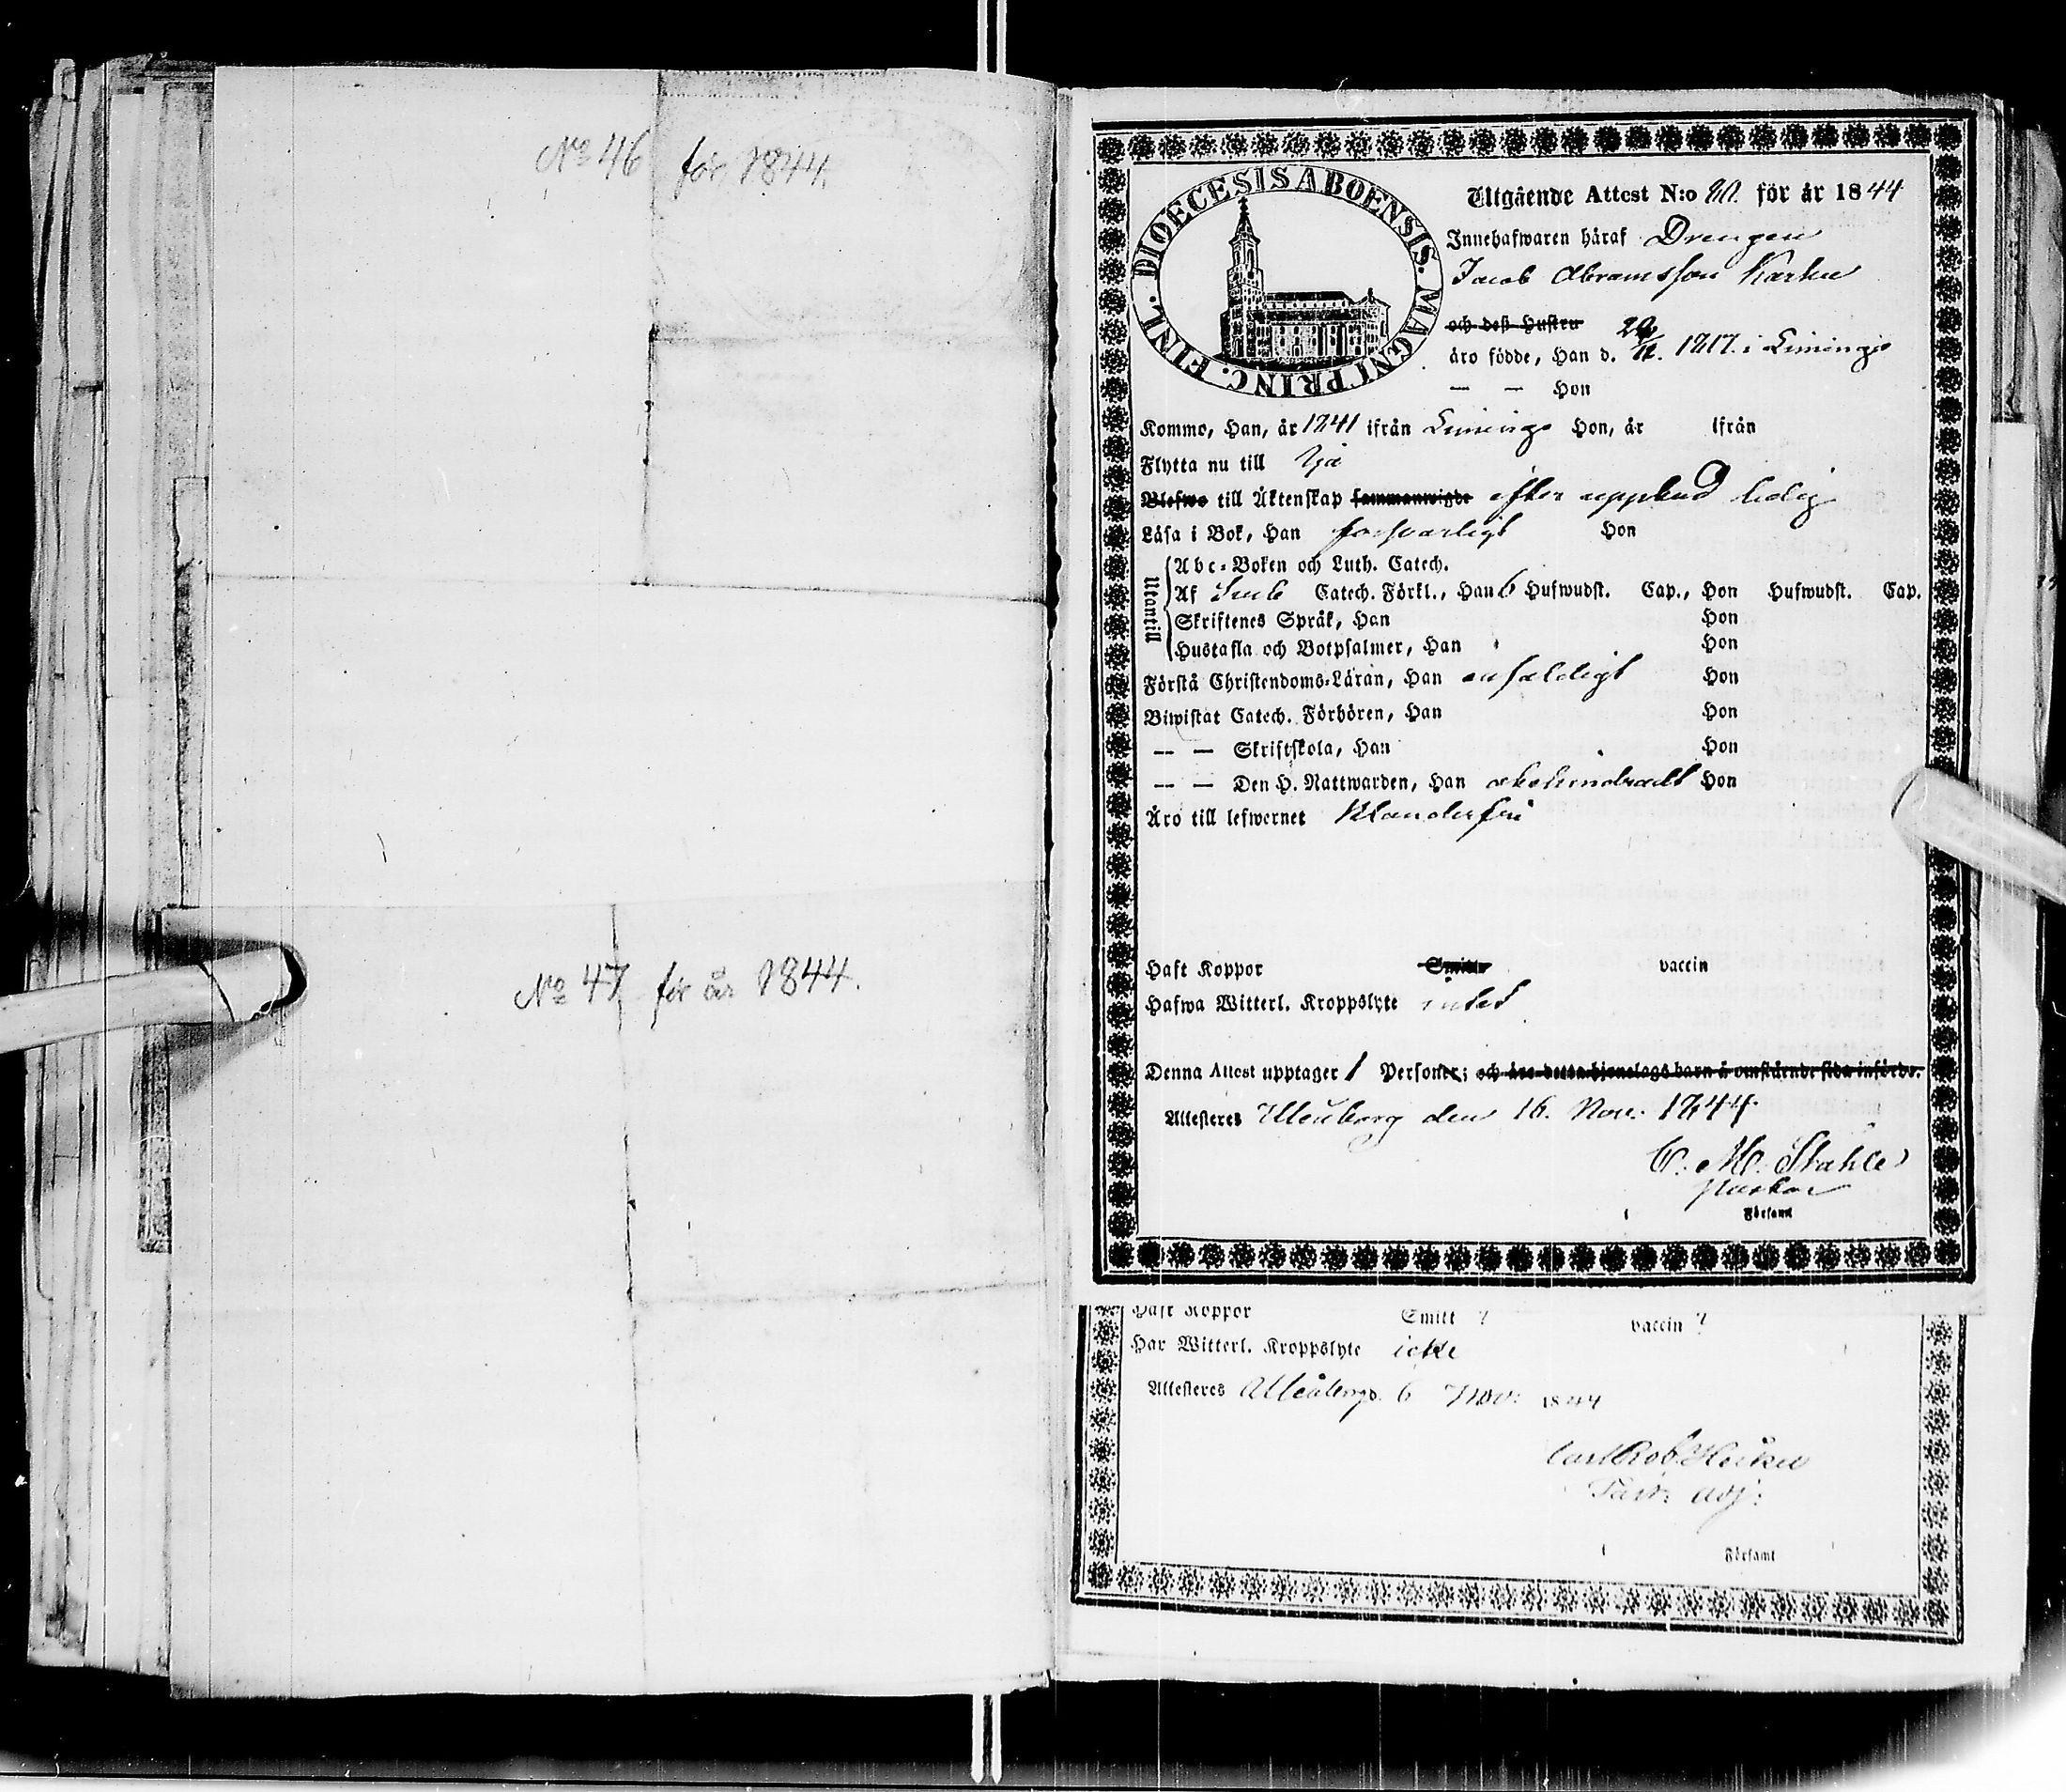 No 46 för 1844.
No 47 för år 1844.
DIOECESIS ABOENSIS. MAGNI PRINC. FINL.
Utgående Attest N:o för år 1844
Innehafwaren häraf Drengen
Jacob Abramsson Karhu
och deß Hustru
äro födde, Han d. 1817. i Limingo
— — Hon
Kommo, Han, år 1841 ifrån Limingo Hon, år ifrån
Flytta nu till Ijo
Blefwo till Äktenskap sammanwigde efter uppbud ledig
Läsa i Bok, Han forsvarligt Hon
Utantill
Abc-Boken och Luth. Catech.
Af Catech. Förkl., Han 6 Hufwudst. Cap., Hon Hufwudst. Cap.
Skriftenes Språk, Han Hon
Hustafla och Botpsalmer, Han Hon
Förstå Christendoms-Läran, Han enfaldigt Hon
Biwistat Catech. Förhören, Han Hon
— — Skriftskola, Han Hon
— — Den H. Nattwarden, Han obehindradt Hon
Äro till lefwernet klanderfri
Haft Koppor Smitt vaccin
Hafwa Witterl. Kroppslyte intet
Denna Attest upptager 1 Personer; och äro detta hjonelags barn å omstående sida införde.
Attesteres Uleåborg den 16. Nov. 1844.
C. M. Ståhle
Pastor
Församl
Haft Koppor Smitt ? vaccin ?
Har Witterl. Kroppslyte icke
Attesteres Uleåborg d. 6 Nov: 1844
Carl Rob. Heikel
Past: adj:
Församl